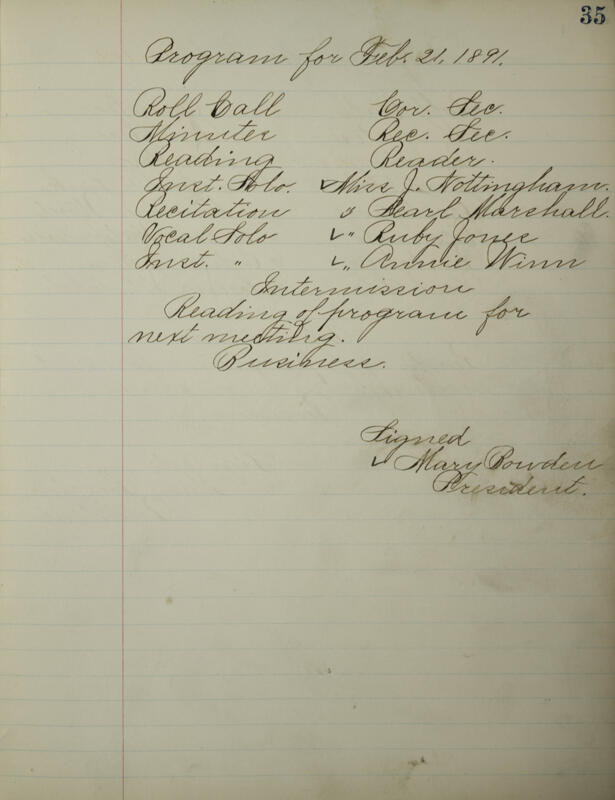 35
Program for Feb. 21, 1891.
Roll Call Cor. Sec.
Minutes Rec. Sec.
Reading Reader.
Inst. Solo. ✓Miss J. Nottingham.
Recitation " Pearl Marshall.
Vocal Solo ✓" Ruby Jones
Inst. " ✓" Annie Winn
Intermission
Reading of program for
next meeting.
Business.
Signed
✓ Mary Bowden
President.